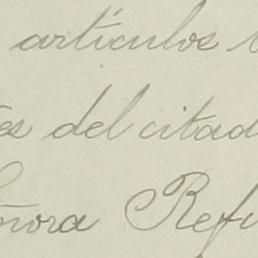 artículos
es del citad
ñora Refu